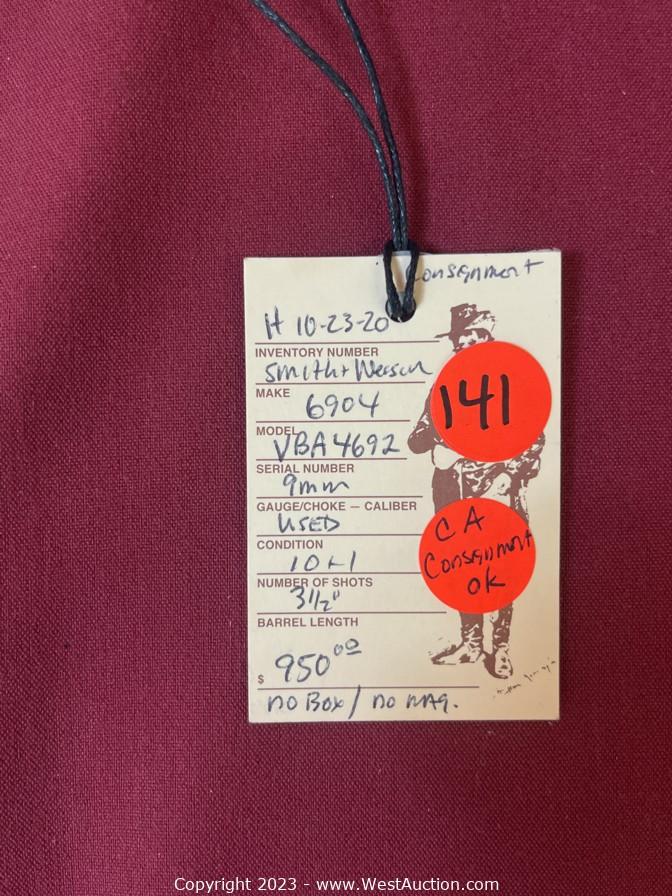 Consignment
H 10-23-20
INVENTORY NUMBER
Smith + Wesson
MAKE
6904
MODEL
VBA4692
SERIAL NUMBER
9mm
GAUGE/CHOKE — CALIBER
USED
CONDITION
10+1
NUMBER OF SHOTS
3 1/2"
BARREL LENGTH
$ 950.00
NO BOX / NO MAG.
141
CA
Consignment
OK
Copyright 2023 - www.WestAuction.com